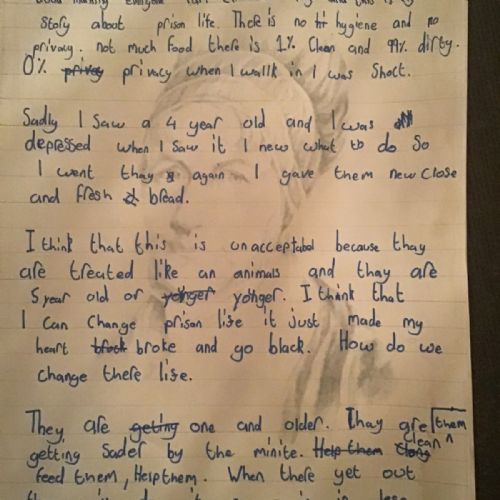 story about prison life. There is no hygiene and no
privacy. not much food there is 1% Clean and 99% dirty.
0% privacy when I wallk in I was Shoct.
Sadly I Saw a 4 year old and I was
depressed when I Saw it I new what to do So
I went thay again I gave them new close
and fresh bread.
I think that this is unacceptabol because thay
are treated like an animals and thay are
5 year old or yönger. I think that
I can change prison life it just made my
heart broke and go black. How do we
change there life.
They are one and older. Thay are them
getting Sader by the minite. clean
feed them, Help them. When there yet out